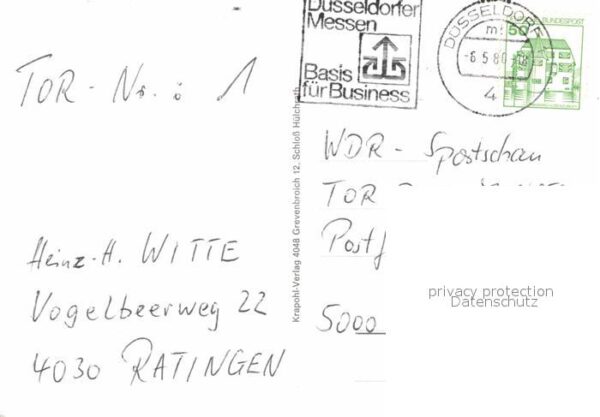 Düsseldorfer
Messen
Basis
für Business
DÜSSELDORF
-6.5.80-
4
50
BUNDESPOST
TOR-Nr.: 1
Krapohl-Verlag 4048 Grevenbroich 12, Schloß Hülchrath
WDR - Sportschau
TOR
Postf
5000
Heinz-H. WITTE
Vogelbeerweg 22
4030 RATINGEN
privacy protection
Datenschutz